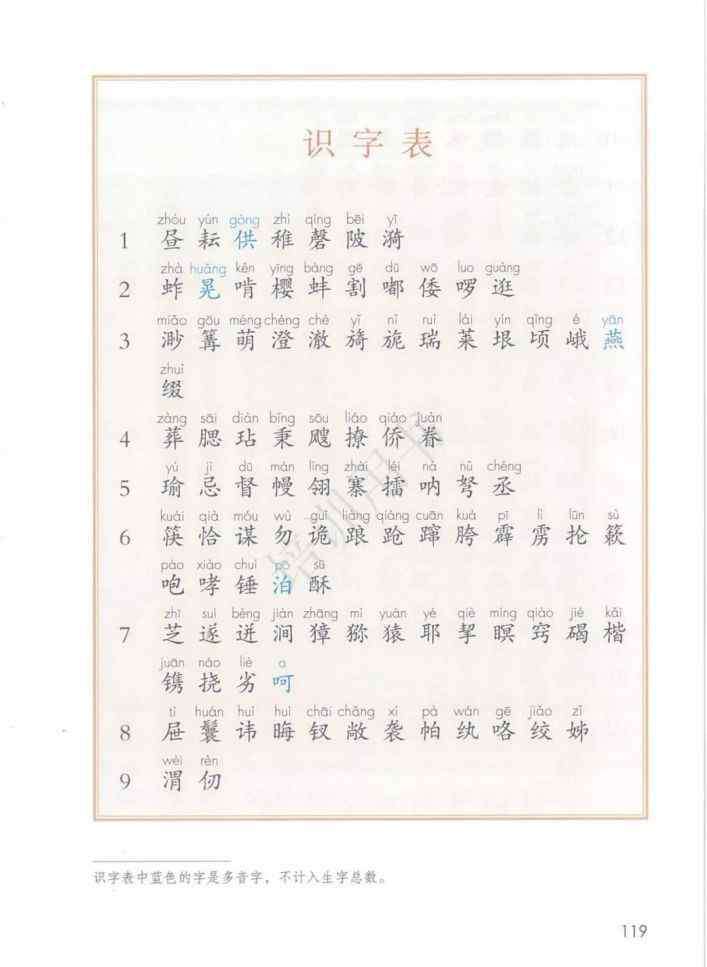 识字表
zhòu yún gòng zhì qìng bēi yī
1 昼 耘 供 稚 磬 陂 漪
zhà huàng kěn yīng bàng gē dū wō luo guàng
2 蚱 晃 啃 樱 蚌 割 嘟 倭 啰 逛
miǎo gōu méng chéng chè yǐ nǐ ruì lái yín qǐng é yān
3 渺 篝 萌 澄 澈 旖 旎 瑞 莱 垠 顷 峨 燕
zhuì
缀
zàng sāi diàn bǐng sōu liáo qiáo juàn
4 葬 腮 玷 秉 飕 撩 侨 眷
yú jì dū màn líng zhài léi nà nǔ chéng
5 瑜 忌 督 幔 翎 寨 擂 呐 弩 丞
kuài qià móu wù guǐ liàng qiàng cuān kuà pī lì lūn sù
6 筷 恰 谋 勿 诡 踉 跄 蹿 胯 霹 雳 抡 簌
páo xiào chuí pō sū
咆 哮 锤 泊 酥
zhī suì bèng jiàn zhāng mí yuán yé qiè míng qiào jié kǎi
7 芝 遂 迸 涧 獐 猕 猿 耶 挈 瞑 窍 碣 楷
juān náo liè a
镌 挠 劣 呵
tì huán huì huì chāi chǎng xí pà wán gē jiǎo zǐ
8 屉 鬟 讳 晦 钗 敞 袭 帕 纨 咯 绞 姊
wèi rèn
9 渭 仞
识字表中蓝色的字是多音字，不计入生字总数。
119
培训用书